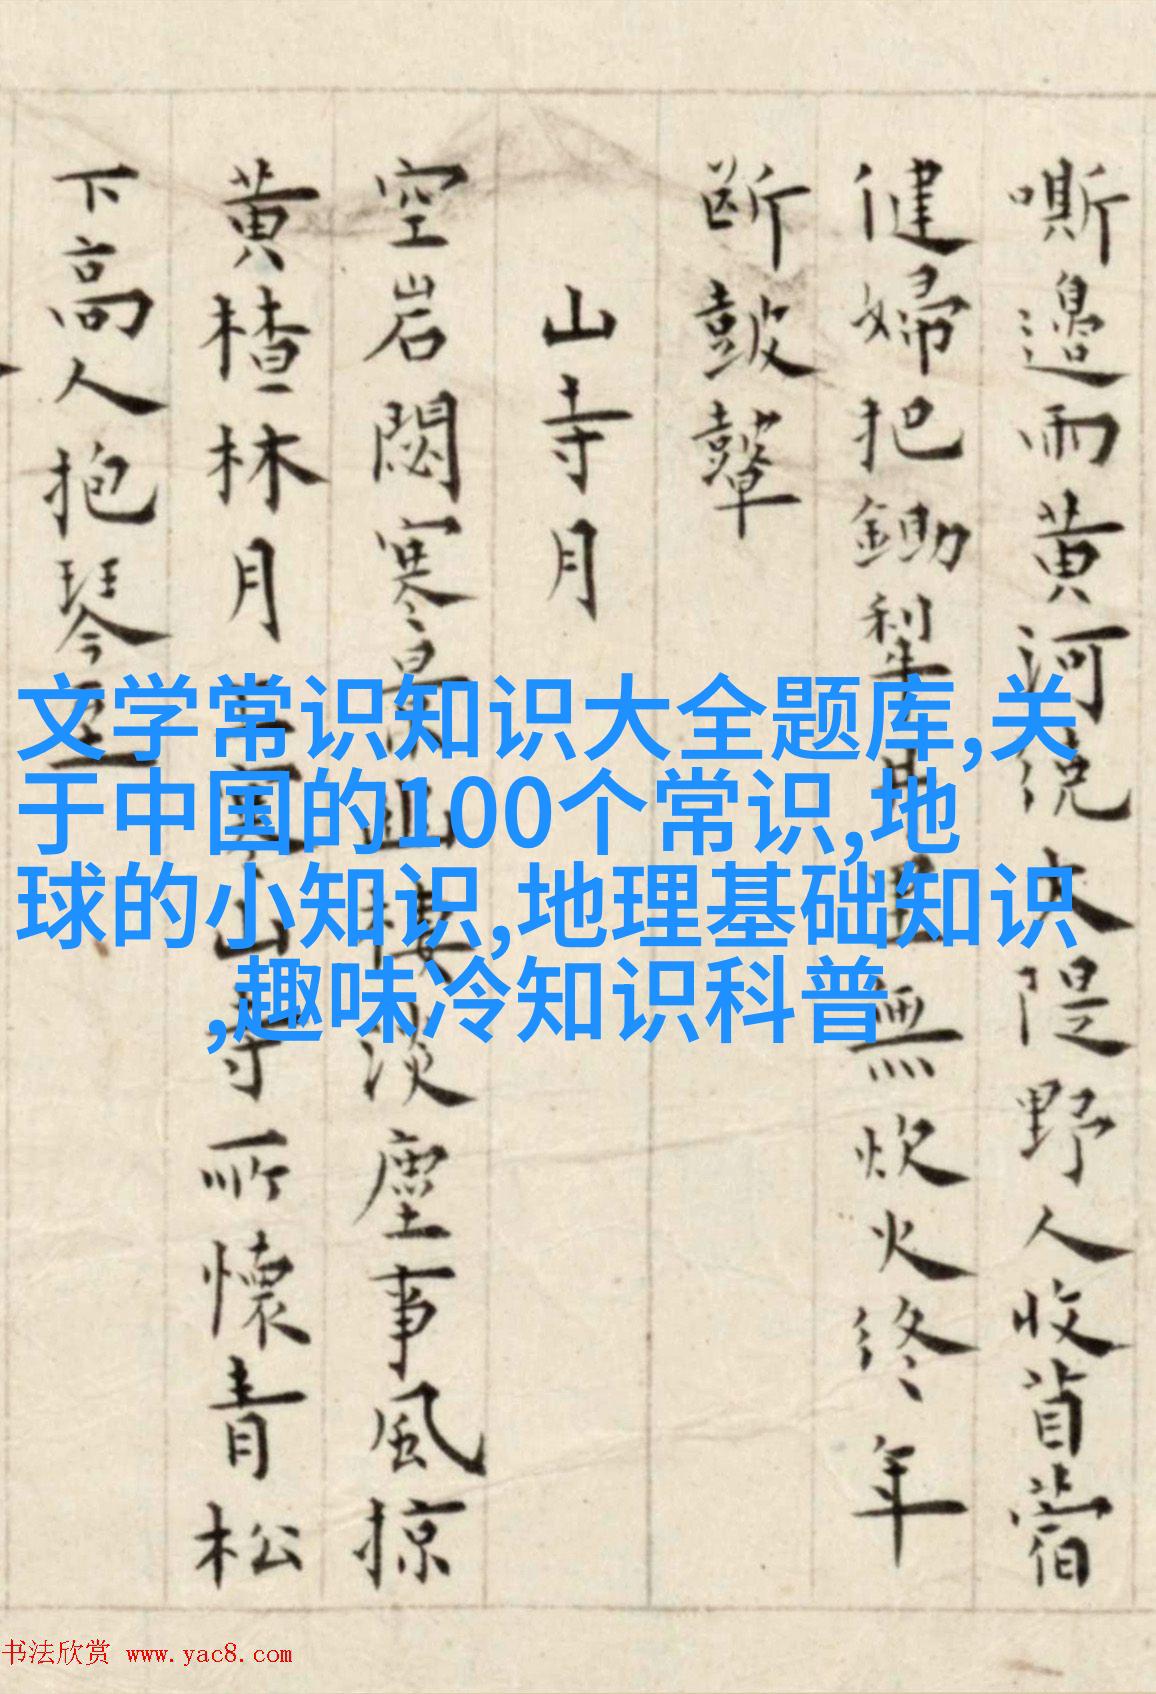 嘶邊雨黄河繞大隄野人收苜蓿
健婦把鋤犁無炊火終年
断皷鼙
山寺月
空岩閟寒景樓淡塵事風掠
黄楂林月山寺所懷青松
下高人抱琴至
文学常识知识大全题库,关
于中国的100个常识,地
球的小知识,地理基础知识
,趣味冷知识科普
书法欣赏 www.yac8.com